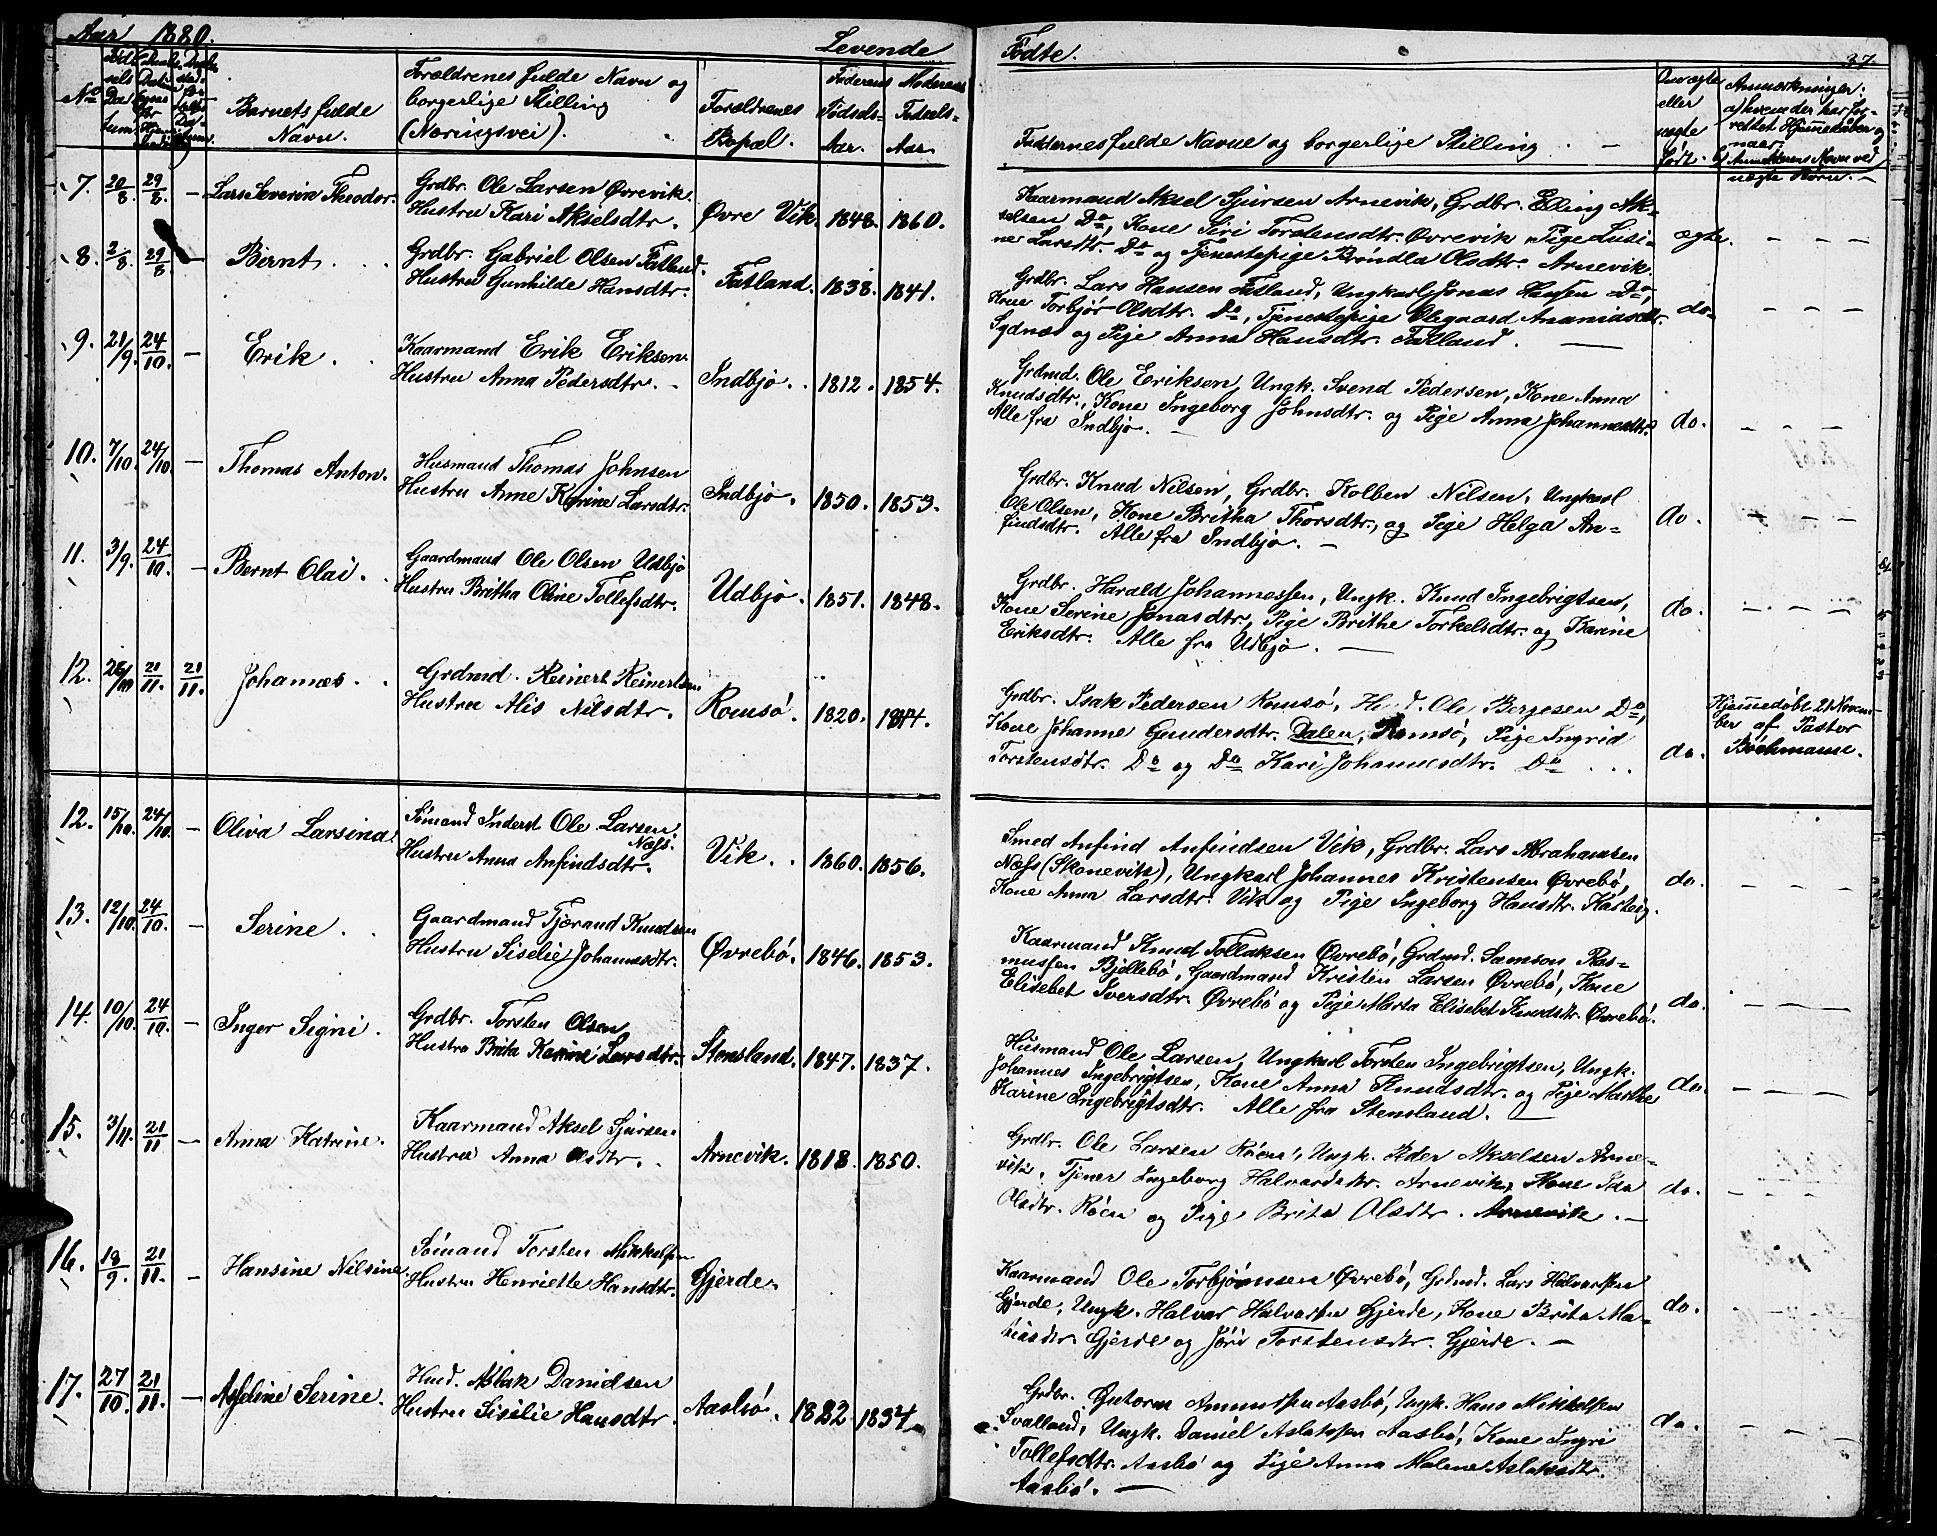 Aar 1880.
Levende
Fødte.
37.
No
Barnets fulde
Navn.
Forældrenes fulde Navn og
borgerlige Stilling
(Næringsvei).
Forældrenes
Bopæl.
Faderens
Fødsels-
Aar.
Moderens
Fødsels-
Aar.
Faddernes fulde Navne og borgerlige Stilling
eller
ægte
født.
Anmærkninger:
a) hvem der har for-
rettet Hjemmedåben og
naar,
uægte Børn. —
7. 20/8 29/8 — Lars Severin Theodor.
Grdbr. Ole Larsen Øvrevik.
Hustru Kari Akselsdtr.
Øvre Vik. 1848. 1860.
Kaarmand Aksel Sjursen Arnevik, Grdbr. Elling Ak-
selsen Do, Kone Siri Torstensdtr. Øvrevik Pige Lusi-
ne Larsdtr. Do og Tjenestepige Brindla Olsdtr. Arnevik.
ægte. — — —
8. 2/8 29/8 — Bernt.
Grdbr. Gabriel Olsen Fatland.
Hustru Gunhilde Hansdtr.
Fatland. 1838. 1841.
Grdbr. Lars Hansen Fatland, Ungkarl Jonas Hansen Do,
Kone Torbjør Olsdtr. Do, Tjenestepige Olegaard Ananiasdtr.
Sydnæs og Pige Anna Hansdtr. Fatland.
do. — — —
9. 21/9 24/10. — Erik.
Kaarmand Erik Eriksen
Hustru Anna Pedersdtr. —
Indbjo. 1812. 1854.
Grdmd. Ole Eriksen, Ungk. Svend Pedersen, Kone Anna
Knudsdtr., Kone Ingeborg Johnsdtr. og Pige Anna Johannesdtr.
Alle fra Indbjo. —
do. — — —
10. 7/10. 24/10. — Thomas Anton.
Husmand Thomas Johnsen
Hustru Anne Karine Larsdtr.
Indbjo. 1850. 1853.
Grdbr. Knud Nilsen, Grdbr. Kolben Nilsen, Ungkarl
Ole Olsen, Kone Britha Thorsdtr., og Pige Helga An-
findsdtr. Alle fra Indbjo. —
do. — — —
11. 3/9. 24/10. — Bernt Olai.
Gaardmand Ole Olsen Udbjo
Hustru Britha Oline Tollefsdtr.
Udbjo. 1851. 1848.
Grdbr. Harald Johannessen, Ungk. Knud Ingebrigtsen,
Kone Serine Jonasdtr., Pige Brithe Torkelsdtr. og Karine
Eriksdtr. Alle fra Udbjo. —
do. — — —
12. 21/11. 21/11. Johannes.
Grdmd. Reinert Reinertsen
Hustru Alis Nilsdtr.
Romsø. 1820. 1844.
Grdbr. Isak Pedersen Romsø, Ole Børgesen Do,
Kone Johanne Gundersdtr. Dalen, Romsø, Pige Ingrid
Torstensdtr. Do og Do Kari Johannesdtr. Do
do.
Hjemmedøbt 21 Novem-
ber af Pastor
Brchmanne.
12. 15/10. 24/10. — Oliva Larsina
Sømand Inderst Ole Larsen
Næss.
Hustru Anna Anfindsdtr.
Vik. 1860. 1856.
Smed Anfind Anfindsen Vik, Grdbr. Lars Abrahamsen
Næss (Skonevik), Ungkarl Johannes Kristensen Øvrebø,
Kone Anna Larsdtr. Vik og Pige Ingeborg Hansdtr. Karteig.
do. — — —
13. 12/10. 24/10. — Serine.
Gaardmand Tjærand Knudsen
Hustru Siselie Johannesdtr.
Øvrebø. 1846. 1853.
Kaarmand Knud Tollaksen Øvrebø, Grdmd. Samson Ras-
mussen Bjellebø, Gaardmand Kristen Larsen Øvrebø, Kone
Elisebet Iversdtr. Øvrebø og Pige Marta Elisebet Knudsdtr. Øvrebø.
do. — — —
14. 10/10. 24/10. — Inger Signi.
Grdbr. Torsten Olsen
Hustru Brita Karine Larsdtr.
Stensland. 1847. 1837.
Husmand Ole Larsen, Ungkarl Torsten Ingebrigtsen, Ungk.
Johannes Ingebrigtsen, Kone Anna Knudsdtr. og Pige Marthe
Karine Ingebrigtsdtr. Alle fra Stensland. —
do. — — —
15. 3/11. 21/11 — Anna Katrine.
Kaarmand Aksel Sjursen
Hustru Anna Olsdtr.
Arnevik. 1818. 1850.
Grdbr. Ole Larsen Røen, Ungk. Peder Akselsen Arne-
vik. Tjener Ingeborg Halvardsdtr. Arnevik, Kone Ida
Olsdtr. Røen og Pige Brita Olsdtr. Arnevik. —
do. — — —
16. 18/9. 21/11. — Hansine Nilsine
Sømand Torsten Mikkelsen
Hustru Henriette Hansdtr.
Gjerde.
Kaarmand Ole Torbjørnsen Øvrebø, Grdmd. Lars Halvorsen
Gjerde, Ungk. Halvar Halvarsen Gjerde, Kone Brita Ma-
thiasdtr Gjerde og Jøri Torstensdtr. Gjerde. —
do. — — —
17. 27/10. 21/11. — Aseline Serine.
Husd. Aslak Danidsen
Hustru Siselie Hansdtr.
Aasbø. 1832 1834
Grdbr. Guttorm Amundsen Aasbø, Ungk. Hans Mikkelsen
Svalland, Ungk. Daniel Aslaksen Aasbø, Kone Ingri
Tollefsdtr. Aasbø og Pige Anna Malene Aslaksdtr.
Aasbø. —
do. — — —